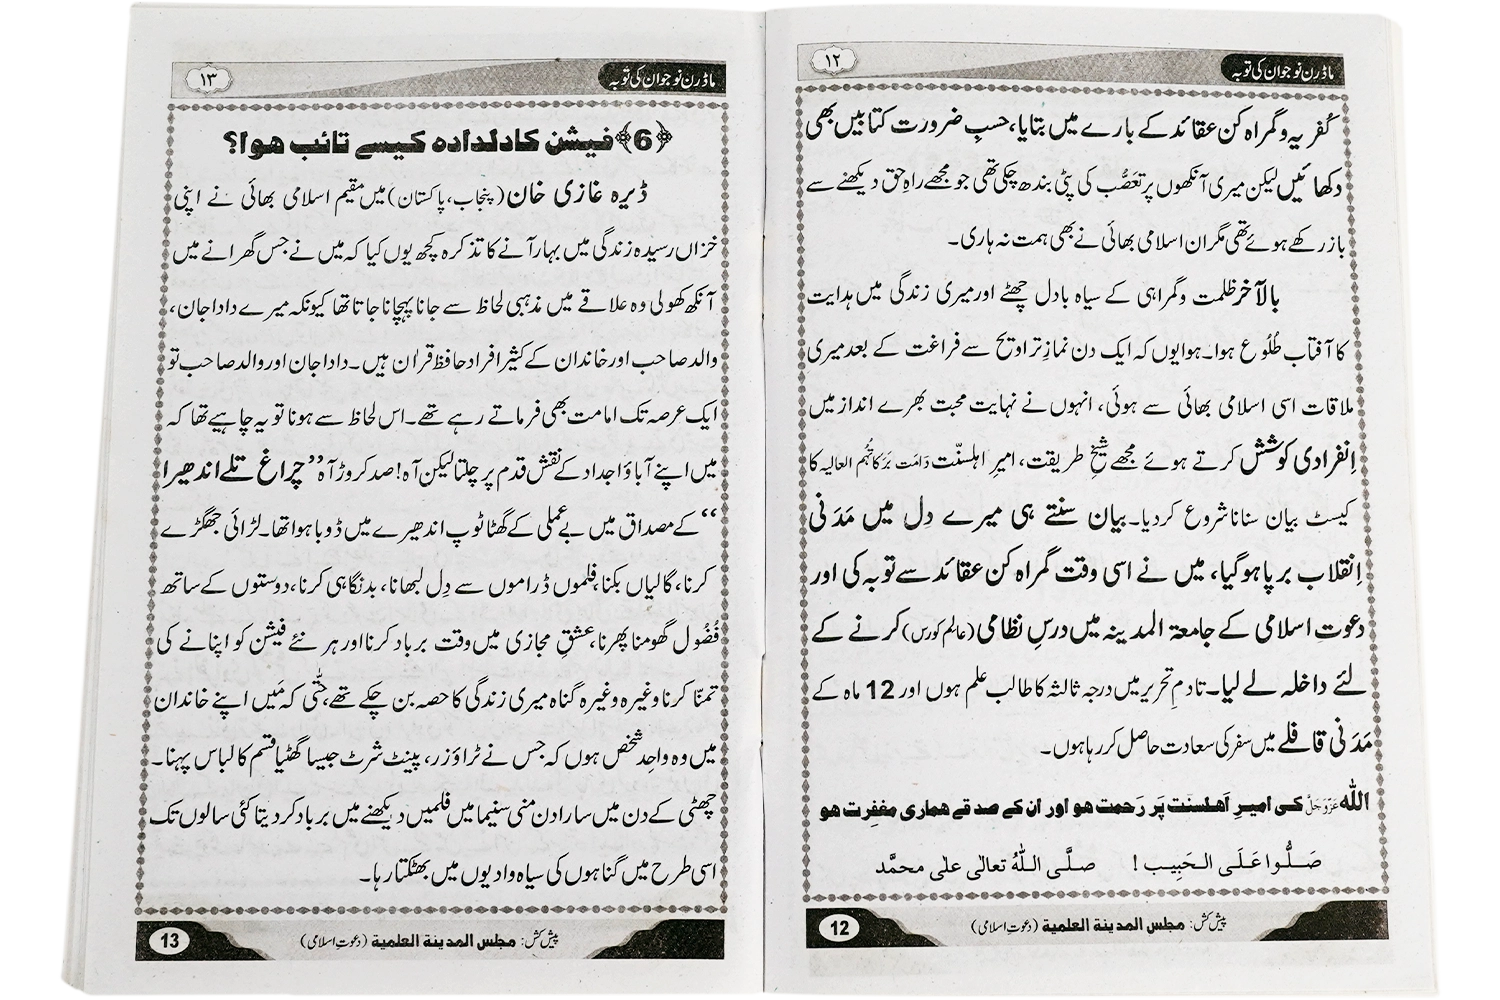 ماڈرن نوجوان کی توبہ
۱۲
کُفریہ وگمراہ کن عقائد کے بارے میں بتایا، حسبِ ضرورت کتابیں بھی
دکھائیں لیکن میری آنکھوں پر تعصُّب کی پٹی بندھ چکی تھی جو مجھے راہِ حق دیکھنے سے
باز رکھے ہوئے تھی مگر ان اسلامی بھائی نے بھی ہمت نہ ہاری۔
بالآخر ظلمت وگمراہی کے سیاہ بادل چھٹے اور میری زندگی میں ہدایت
کا آفتاب طُلُوع ہوا۔ ہوا یوں کہ ایک دن نمازِ تراویح سے فراغت کے بعد میری
ملاقات اسی اسلامی بھائی سے ہوئی، انہوں نے نہایت محبت بھرے انداز میں
اِنفرادی کوشش کرتے ہوئے مجھے شیخِ طریقت، امیرِ اہلسنّت دَامَت بَرَکاتُہُم العالیہ کا
کیسٹ بیان سنانا شروع کردیا۔ بیان سنتے ہی میرے دِل میں مَدَنی
اِنقلاب برپا ہوگیا، میں نے اسی وقت گمراہ کن عقائد سے توبہ کی اور
دعوتِ اسلامی کے جامعۃ المدینہ میں درسِ نظامی (عالِم کورس) کرنے کے
لئے داخلہ لے لیا۔ تادمِ تحریر میں درجہ ثالثہ کا طالب علم ہوں اور 12 ماہ کے
مَدَنی قافلے میں سفر کی سعادت حاصل کررہا ہوں۔
اللہ عَزَّوَجَلَّ کی امیرِ اَھلسنّت پَر رَحمت ھو اور ان کے صدقے ھماری مغفِرت ھو
صَلُّوا عَلَی الحَبِیب ! صلَّی اللہُ تعالٰی علٰی محمَّد
پیش کش: مجلس المدینۃ العلمیۃ (دعوتِ اسلامی)
12
ماڈرن نوجوان کی توبہ
۱۳
﴿6﴾ فیشن کا دلدادہ کیسے تائب ھوا؟
ڈیرہ غازی خان (پنجاب، پاکستان) میں مقیم اسلامی بھائی نے اپنی
خزاں رسیدہ زندگی میں بہار آنے کا تذکرہ کچھ یوں کیا کہ میں نے جس گھرانے میں
آنکھ کھولی وہ علاقے میں مذہبی لحاظ سے جانا پہچانا جاتا تھا کیونکہ میرے دادا جان،
والد صاحب اور خاندان کے کثیر افراد حافظِ قران ہیں۔ دادا جان اور والد صاحب تو
ایک عرصہ تک امامت بھی فرماتے رہے تھے۔ اس لحاظ سے ہونا تو یہ چاہیے تھا کہ
میں اپنے آباؤ اجداد کے نقش قدم پر چلتا لیکن آہ! صد کروڑ آہ ’’چراغ تلے اندھیرا
‘‘ کے مصداق میں بے عملی کے گھٹا ٹوپ اندھیرے میں ڈوبا ہوا تھا۔ لڑائی جھگڑے
کرنا، گالیاں بکنا، فلموں ڈراموں سے دِل لبھانا، بدنگاہی کرنا، دوستوں کے ساتھ
فُضُول گھومنا پھرنا، عشقِ مجازی میں وقت برباد کرنا اور ہر نئے فیشن کو اپنانے کی
تمنّا کرنا وغیرہ وغیرہ گناہ میری زندگی کا حصہ بن چکے تھے، حتّٰی کہ مَیں اپنے خاندان
میں وہ واحِد شخص ہوں کہ جس نے ٹراؤزر، پینٹ شرٹ جیسا گھٹیا قسم کا لباس پہنا۔
چھٹی کے دن میں سارا دن منی سنیما میں فلمیں دیکھنے میں برباد کردیتا کئی سالوں تک
اسی طرح میں گناہوں کی سیاہ وادیوں میں بھٹکتا رہا۔
پیش کش: مجلس المدینۃ العلمیۃ (دعوتِ اسلامی)
13